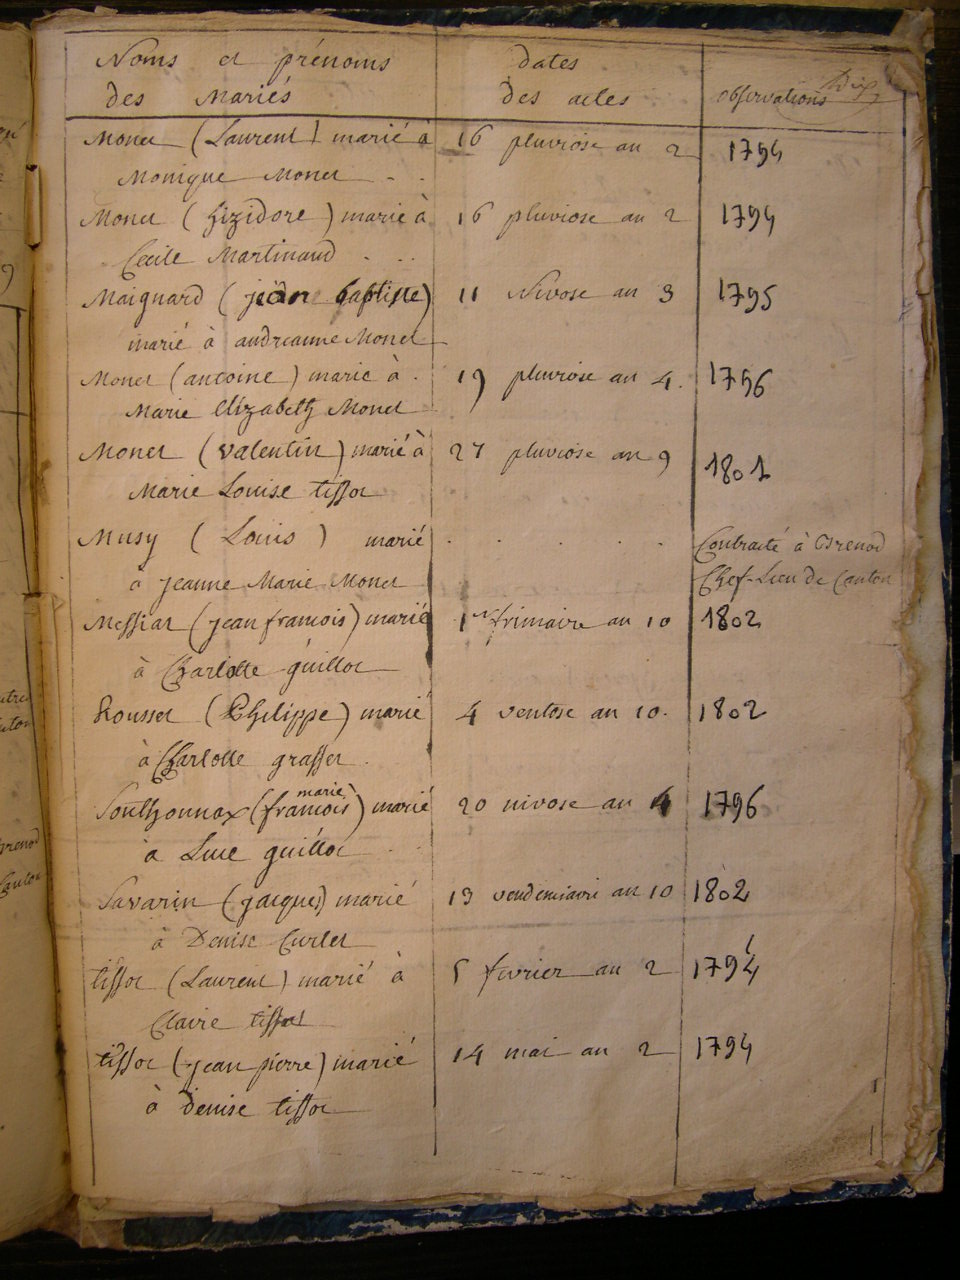 Noms et prénoms dates
des Mariés des actes observations
Monet (Laurent) marié à 16 pluviose an 2 1794
Monique Monet
Monet (hizidore) marié à 16 pluviose an 2 1794
Cecile Martinaud
Maignard (jean baptiste) 11 Nivose an 3 1795
marié à andreanne Monet
Monet (antoine) marié à 19 pluviose an 4. 1796
Marie Elizabeth Monet
Monet (valentin) marié à 27 pluviose an 9 1801
Marie Louise tissot
Musy (Louis) marié Contracté à Brenod
à jeanne Marie Monet Chef-Lieu de Canton
Messiat (jean francois) marié 1er frimaire an 10 1802
à Charlotte guillot
Rousset (Philippe) marié 4 ventose an 10. 1802
à Charlotte grasset
marie
Sonthonnax (francois) marié 20 nivose an 4 1796
à Luce guillot
Savarin (jacques) marié 13 vendemiaire an 10 1802
à Denise Curlet
tissot (Laurent) marié à 5 fevrier an 2 1794
Claire tissot
tissot (jean pierre) marié 14 mai an 2 1794
à denise tissot